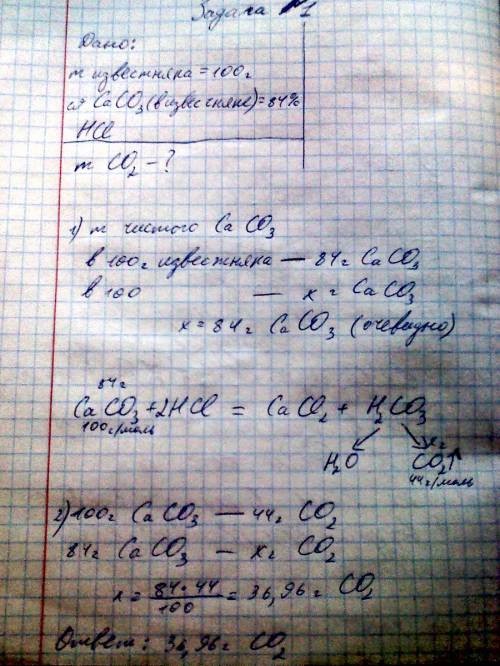 Задача №1
Дано:
m известняка = 100г
ω CaCO₃ (в известняке) = 84%
HCl
m CO₂ - ?
1) m чистого CaCO₃
в 100г известняка — 84г CaCO₃
в 100 — x г CaCO₃
x = 84г CaCO₃ (очевидно)
84г
CaCO₃ + 2HCl = CaCl₂ + H₂CO₃
100г/моль
xг
H₂O CO₂↑
44г/моль
2) 100г CaCO₃ — 44г CO₂
84г CaCO₃ — xг CO₂
x = 84*44/100 = 36,96г CO₂
Ответ: 36,96г CO₂